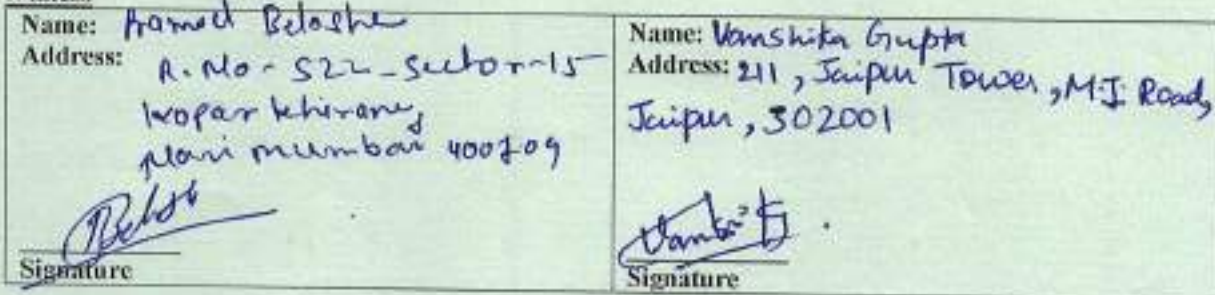 Name: Pramod Beloshe
Address: R. No - S22 - Sector - 15
kopar khirane,
Navi mumbai 400709
Signature
Name: Vanshika Gupta
Address: 211, Jaipur Tower, M.I. Road,
Jaipur, 302001
Signature